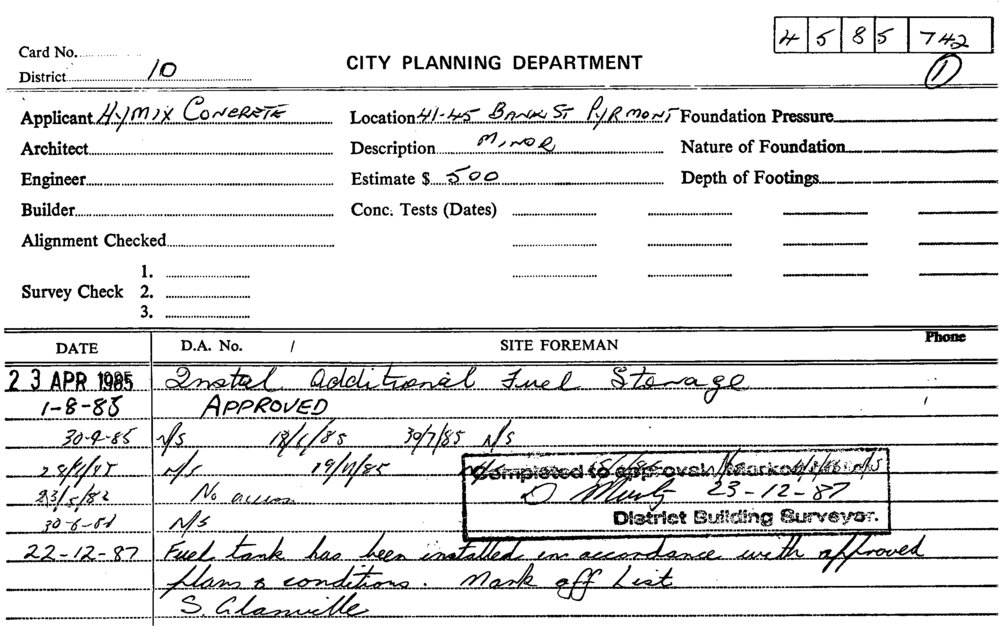 45 85 742
Card No.
District 10
CITY PLANNING DEPARTMENT
1
Applicant HYMIX CONCRETE
Location 41-45 BANK ST PYRMONT
Foundation Pressure
Architect
Description MINOR
Nature of Foundation
Engineer
Estimate $ 500
Depth of Footings
Builder
Conc. Tests (Dates)
Alignment Checked
Survey Check
1.
2.
3.
DATE D.A. No. / SITE FOREMAN Phone
23 APR 1985 Instal Additional Fuel Storage
1-8-85 APPROVED
30-9-85 N/S 30/7/85 N/S
N/S 19/11/85
No action
N/S
Completed to approval Marked
23-12-87
District Building Surveyor.
22-12-87 Fuel tank has been installed in accordance with approved
plans & conditions. Mark off List
S. Glanville